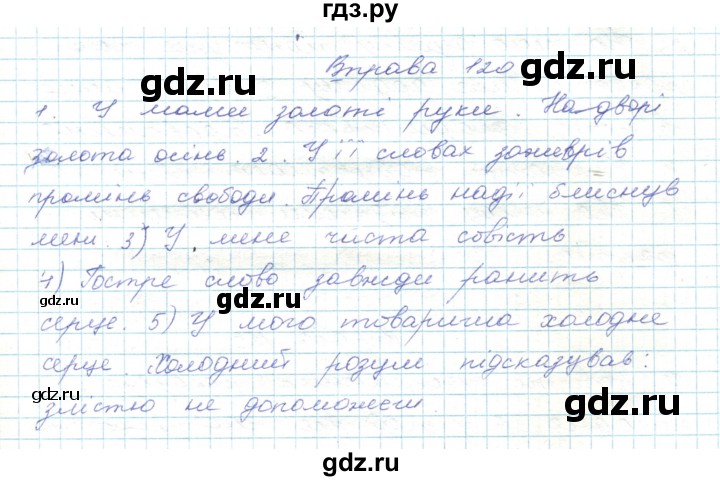 гдз.ру
Вправа 120
1. У мами золоті руки. На дворі
золота осінь. 2. У її словах зажеврів
промінь свободи. Промінь надії блиснув
мені. 3) У мене чиста совість
4) Гостре слово завжди ранить
серце. 5) У мого товариша холодне
серце. Холодний розум підказував:
злістю не допоможеш.
gdz.ru
gdz.ru
gdz.ru
gdz.ru
gdz.ru
gdz.ru
gdz.ru
gdz.ru
gdz.ru
gdz.ru
gdz.ru